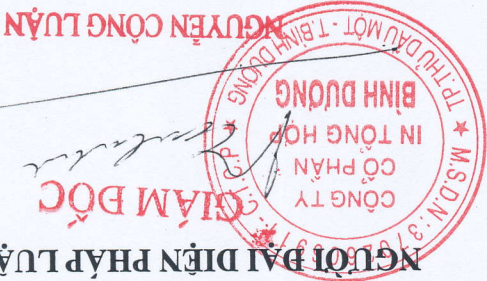 NGƯỜI ĐẠI DIỆN PHÁP LUẬ
GIÁM ĐỐC
M.S.D.N: C.T.C.P
CÔNG TY
CỔ PHẦN
IN TỔNG HỢP
BÌNH DƯƠNG
TP.THỦ DẦU MỘT - T.BÌNH DƯƠNG
NGUYỄN CÔNG LUẬN